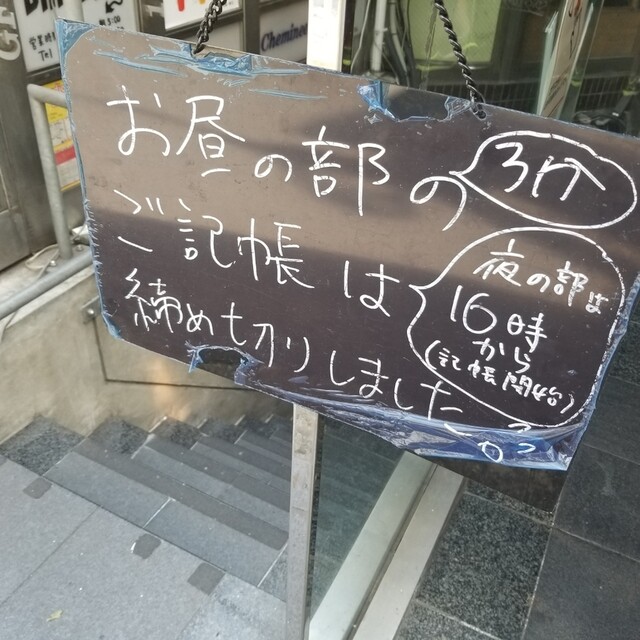 お昼の部の
ご記帳は
締め切りしました。
夜の部は
16時
から
(記帳開始)
営業時
Tel
Cheminee